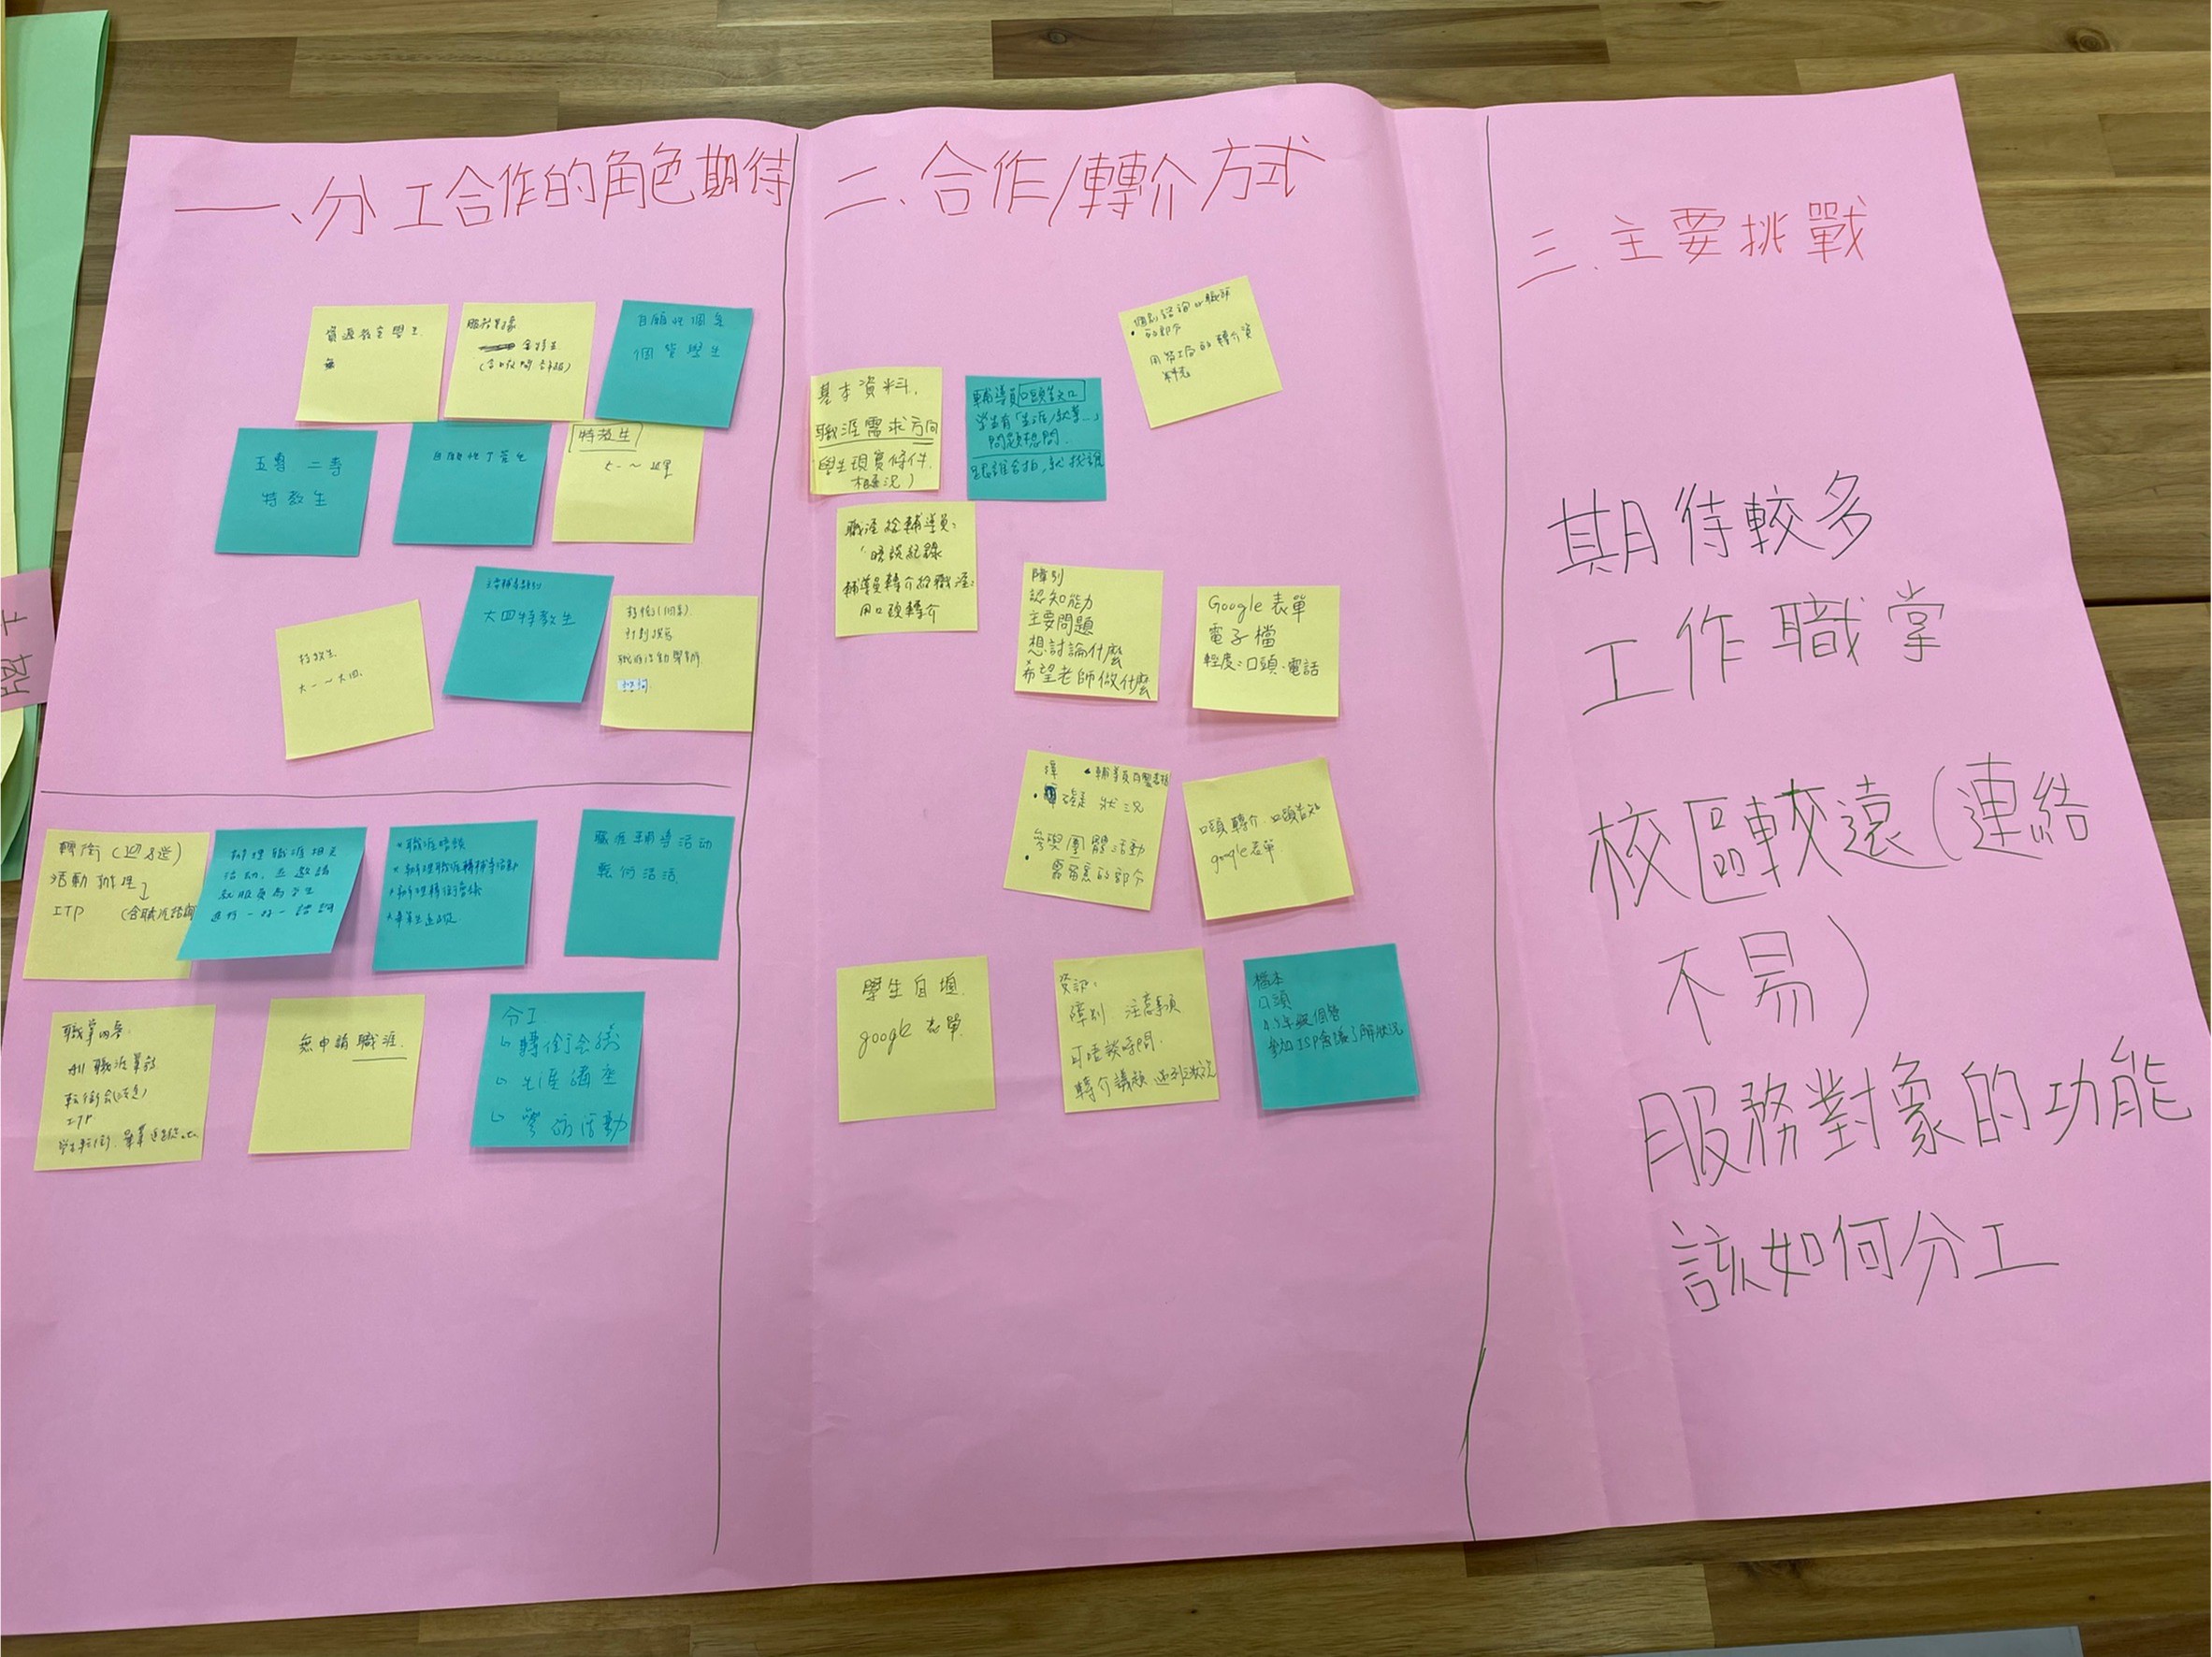 一、分工合作的角色期待
資源教室學生
服務對象
全特生
個管學生
五專 二專
特教生
特教生
大一~
特教生
大一~大四
大四特教生
計劃撰寫
職涯活動舉辦
轉銜(
活動辦理
ITP (含職涯諮詢
辦理職涯相關
活動,並邀請
就服員為學生
進行一對一諮詢
*職涯晤談
*辦理職涯轉輔導活動
*辦理轉銜會議
*畢業生追蹤
職涯輔導活動
転銜活活
職掌內容
ITP
無申請職涯
分工
轉銜會議
生涯講座
參訪活動
二、合作/轉介方式
個別諮詢or職評
的部分
用勞工局的轉介資
料表
基本資料.
職涯需求方向
學生現實條件.
概況)
輔導員口頭轉知
學生有「生涯/就業...」
問題想問.
跟誰合拍,就找誰
職涯給輔導員:
晤談紀錄
輔導員轉介給職涯:
用口頭轉介
障別
認知能力
主要問題
想討論什麼
希望老師做什麼
Google表單
電子檔
輕度:口頭.電話
障
礙 狀況
參與團體活動
需留意的部分
口頭轉介.口頭告知
google表單
學生自填.
google表單
資訊:
障別 注意事項
可晤談時間.
轉介議題
口頭
參加ISP會議了解狀況
三.主要挑戰
期待較多
工作職掌
校區較遠(連結
不易)
服務對象的功能
該如何分工